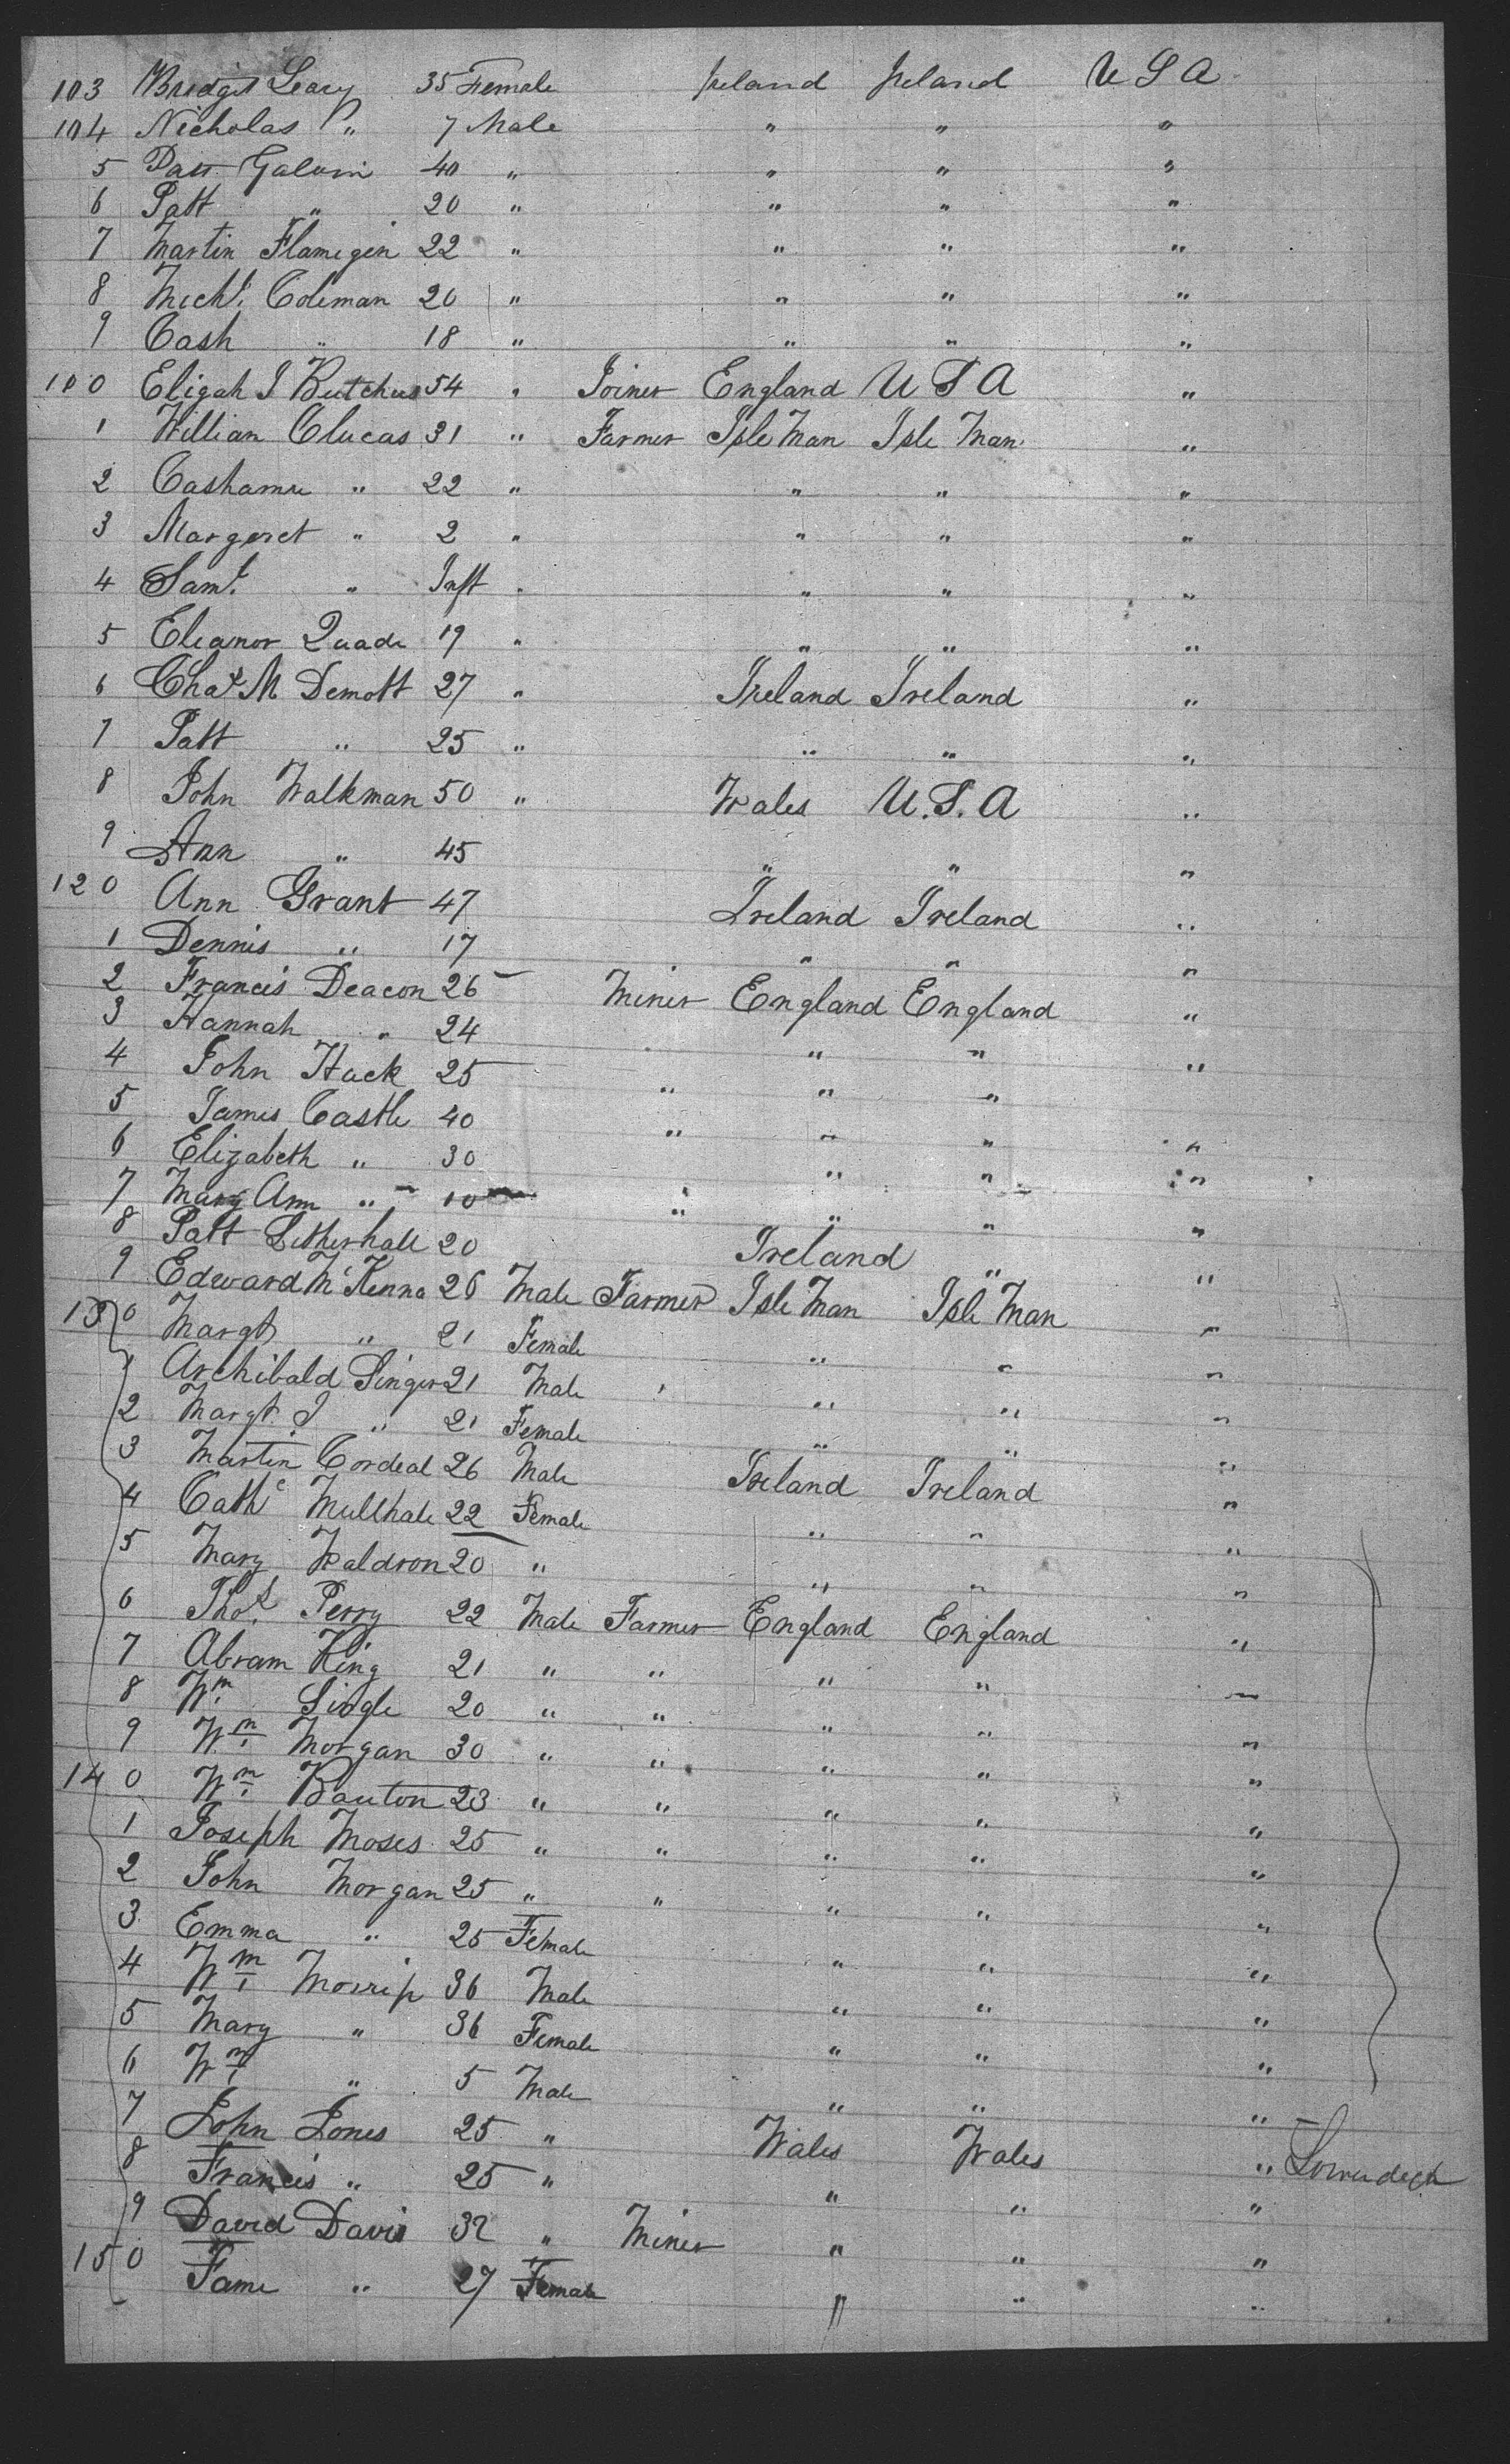 103 Bridget Leary 35 Female Ireland Ireland U S A
104 Nicholas " 7 Male " " "
5 Patt Galvin 40 " " " "
6 Patt " 20 " " " "
7 Martin Flamigin 22 " " " "
8 Michl. Coleman 20 " " " "
9 Cash " 18 " " " "
110 Eligah J Butchus 54 " Joiner England U S A "
1 Willian Clucas 31 " Farmer Isle Man Isle Man "
2 Cashamu " 22 " " " "
3 Margeret " 2 " " " "
4 Saml. " Inft " " " "
5 Eleanor Quade 19 " " " "
6 Chas M Demott 27 " Ireland Ireland "
7 Patt " 25 " " " "
8 John Walkman 50 " Wales U.S.A "
9 Ann " 45 " " "
120 Ann Grant 47 Ireland Ireland "
1 Dennis " 17 " " "
2 Francis Deacon 26 Miner England England "
3 Hannah " 24 " " "
4 John Hack 25 " " "
5 James Castle 40 " " " "
6 Elizabeth " 30 " " "
7 Mary Ann " 10 " " " "
8 Patt Litherhall 20 Ireland " "
9 Edward McKenna 26 Male Farmer Isle Man Isle Man "
130 Margt " 21 Female " " "
1 Archibald Singer 21 Male " " " "
2 Margt. J " 21 Female " " "
3 Martin Cordeal 26 Male Ireland Ireland "
4 Cathe Mullhale 22 Female " " "
5 Mary Waldron 20 " " " "
6 Thos. Perry 22 Male Farmer England England "
7 Abram King 21 " " " " "
8 Wm. Single 20 " " " " "
9 Wm. Morgan 30 " " " " "
140 Wm. Bauton 23 " " " " "
1 Joseph Moses 25 " " " " "
2 John Morgan 25 " " " " "
3 Emma " 25 Female " " "
4 Wm. Morrip 36 Male " " "
5 Mary " 36 Female " " "
6 Wm. " 5 Male " " "
7 John Jones 25 " Wales Wales "
8 Francis " 25 " " " "
9 David Davis 32 " Miner " " "
150 Fame " 27 Female " " "